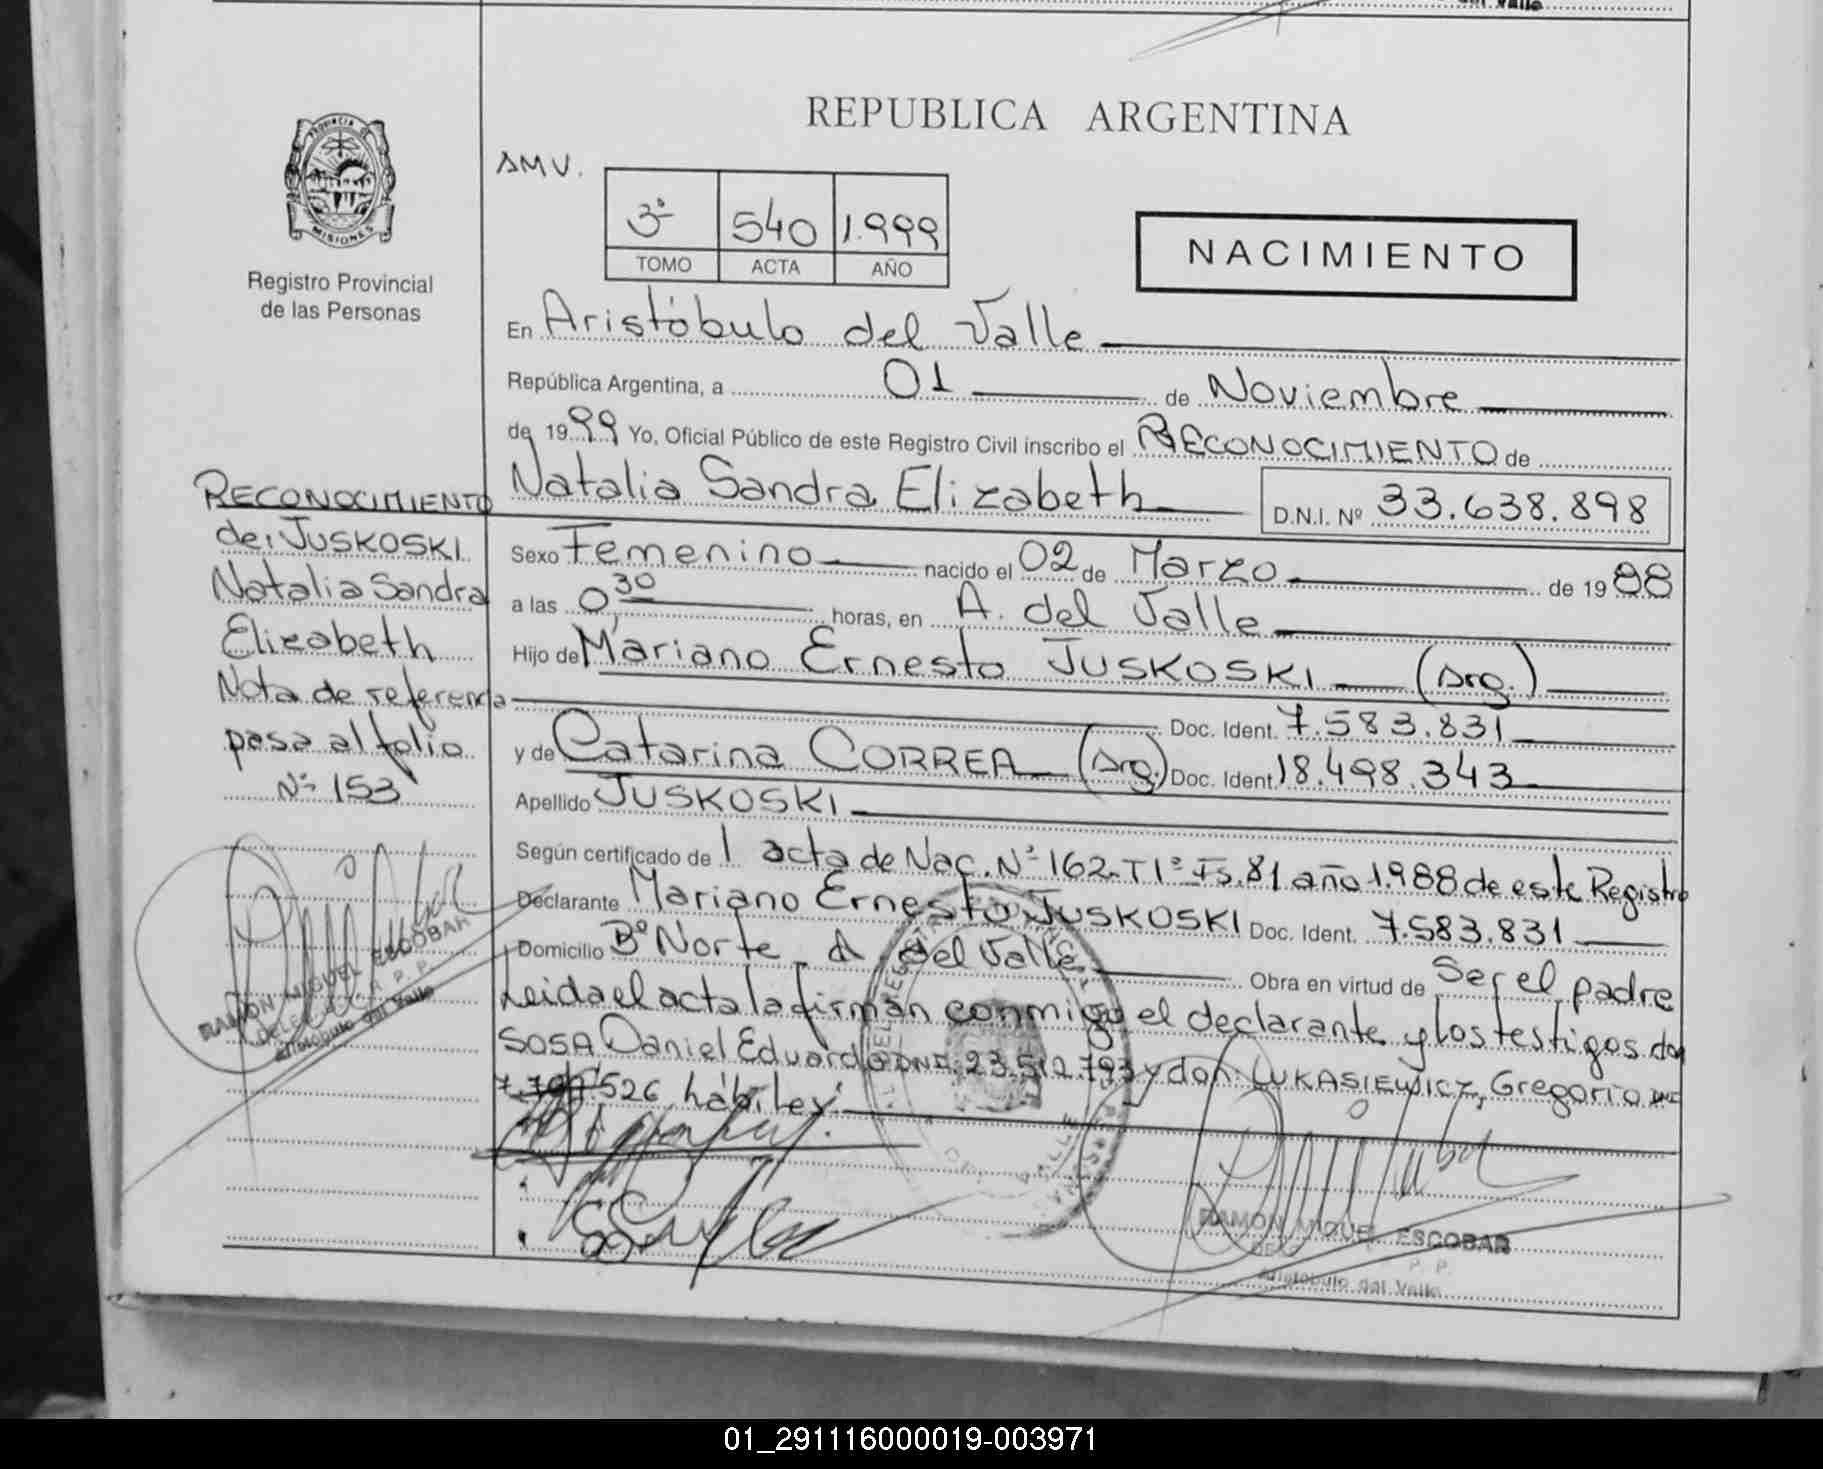 del Valle
REPUBLICA ARGENTINA
PROVINCIA DE
MISIONES
Registro Provincial
de las Personas
AMV.
3º 540 1.999
TOMO ACTA AÑO
NACIMIENTO
En Aristóbulo del Valle
República Argentina, a 01 de Noviembre
de 1999 Yo, Oficial Público de este Registro Civil inscribo el RECONOCIMIENTO de
Natalia Sandra Elizabeth D.N.I. Nº 33.638.898
Sexo Femenino nacido el 02 de Marzo de 1988
a las 0,30 horas, en A. del Valle
Hijo de Mariano Ernesto JUSKOSKI (Arg.)
Doc. Ident. 7.583.831
y de Catarina CORREA (Arg.) Doc. Ident. 18.498.343
Apellido JUSKOSKI
Según certificado de 1 acta de Nac. Nº 162-T1º-Fs.81 año 1.988 de este Registro
Declarante Mariano Ernesto JUSKOSKI Doc. Ident. 7.583.831
Domicilio Bº Norte - A. del Valle Obra en virtud de Ser el padre
Leida el acta la firman conmigo el declarante y los testigos don
SOSA Daniel Eduardo DNI. 23.512.793 y don: LUKASIEWICZ, Gregorio DNI
526 hábiles
RECONOCIMIENTO
de: JUSKOSKI
Natalia Sandra
Elizabeth
Nota de referencia
pasa al folio
Nº 153
RAMON MIGUEL ESCOBAR
DELEGADO A P. P.
Aristóbulo del Valle
RAMON MIGUEL ESCOBAR
P. P.
Aristóbulo del Valle
01_291116000019-003971